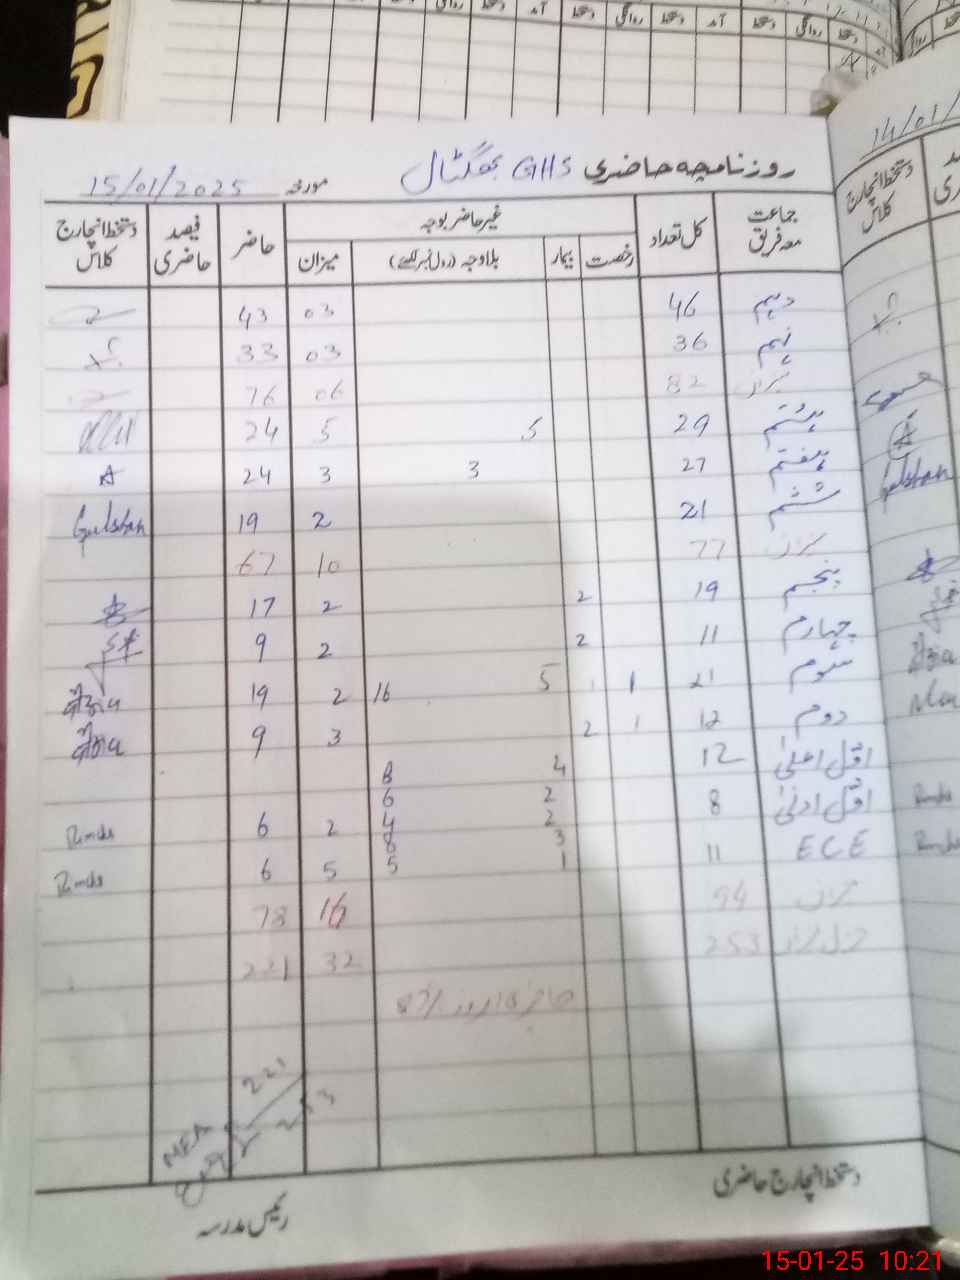 روزنامچہ حاضری GHS بھگٹال مورخہ 15/01/2025
جماعت معہ فریق کل تعداد غیر حاضر بوجہ حاضر فیصد حاضری دستخط انچارج کلاس
رخصت بیمار بلاوجہ (رول نمبر لکھیئے) میزان
دہم 46 03 43
نہم 36 03 33
میزان 82 06 76
ہشتم 29 5 5 24
ہفتم 27 3 3 24 A
ششم 21 2 19 Gulshan
میزان 77 10 67
پنجم 19 2 2 17
چہارم 11 2 2 9
سوم 21 1 1 5 16 2 19
دوم 12 1 2 3 9
اوّل اعلیٰ 12 4 8
اوّل ادنیٰ 8 2 6
2 4 2 6
3 8
ECE 11 1 5 5 6
میزان 94 16 78
میزان 253 32 221
221
253
MEA
دستخط انچارج حاضری
رئیس مدرسہ
14/01/
دستخط انچارج کلاس
Gulshan
15-01-25 10:21